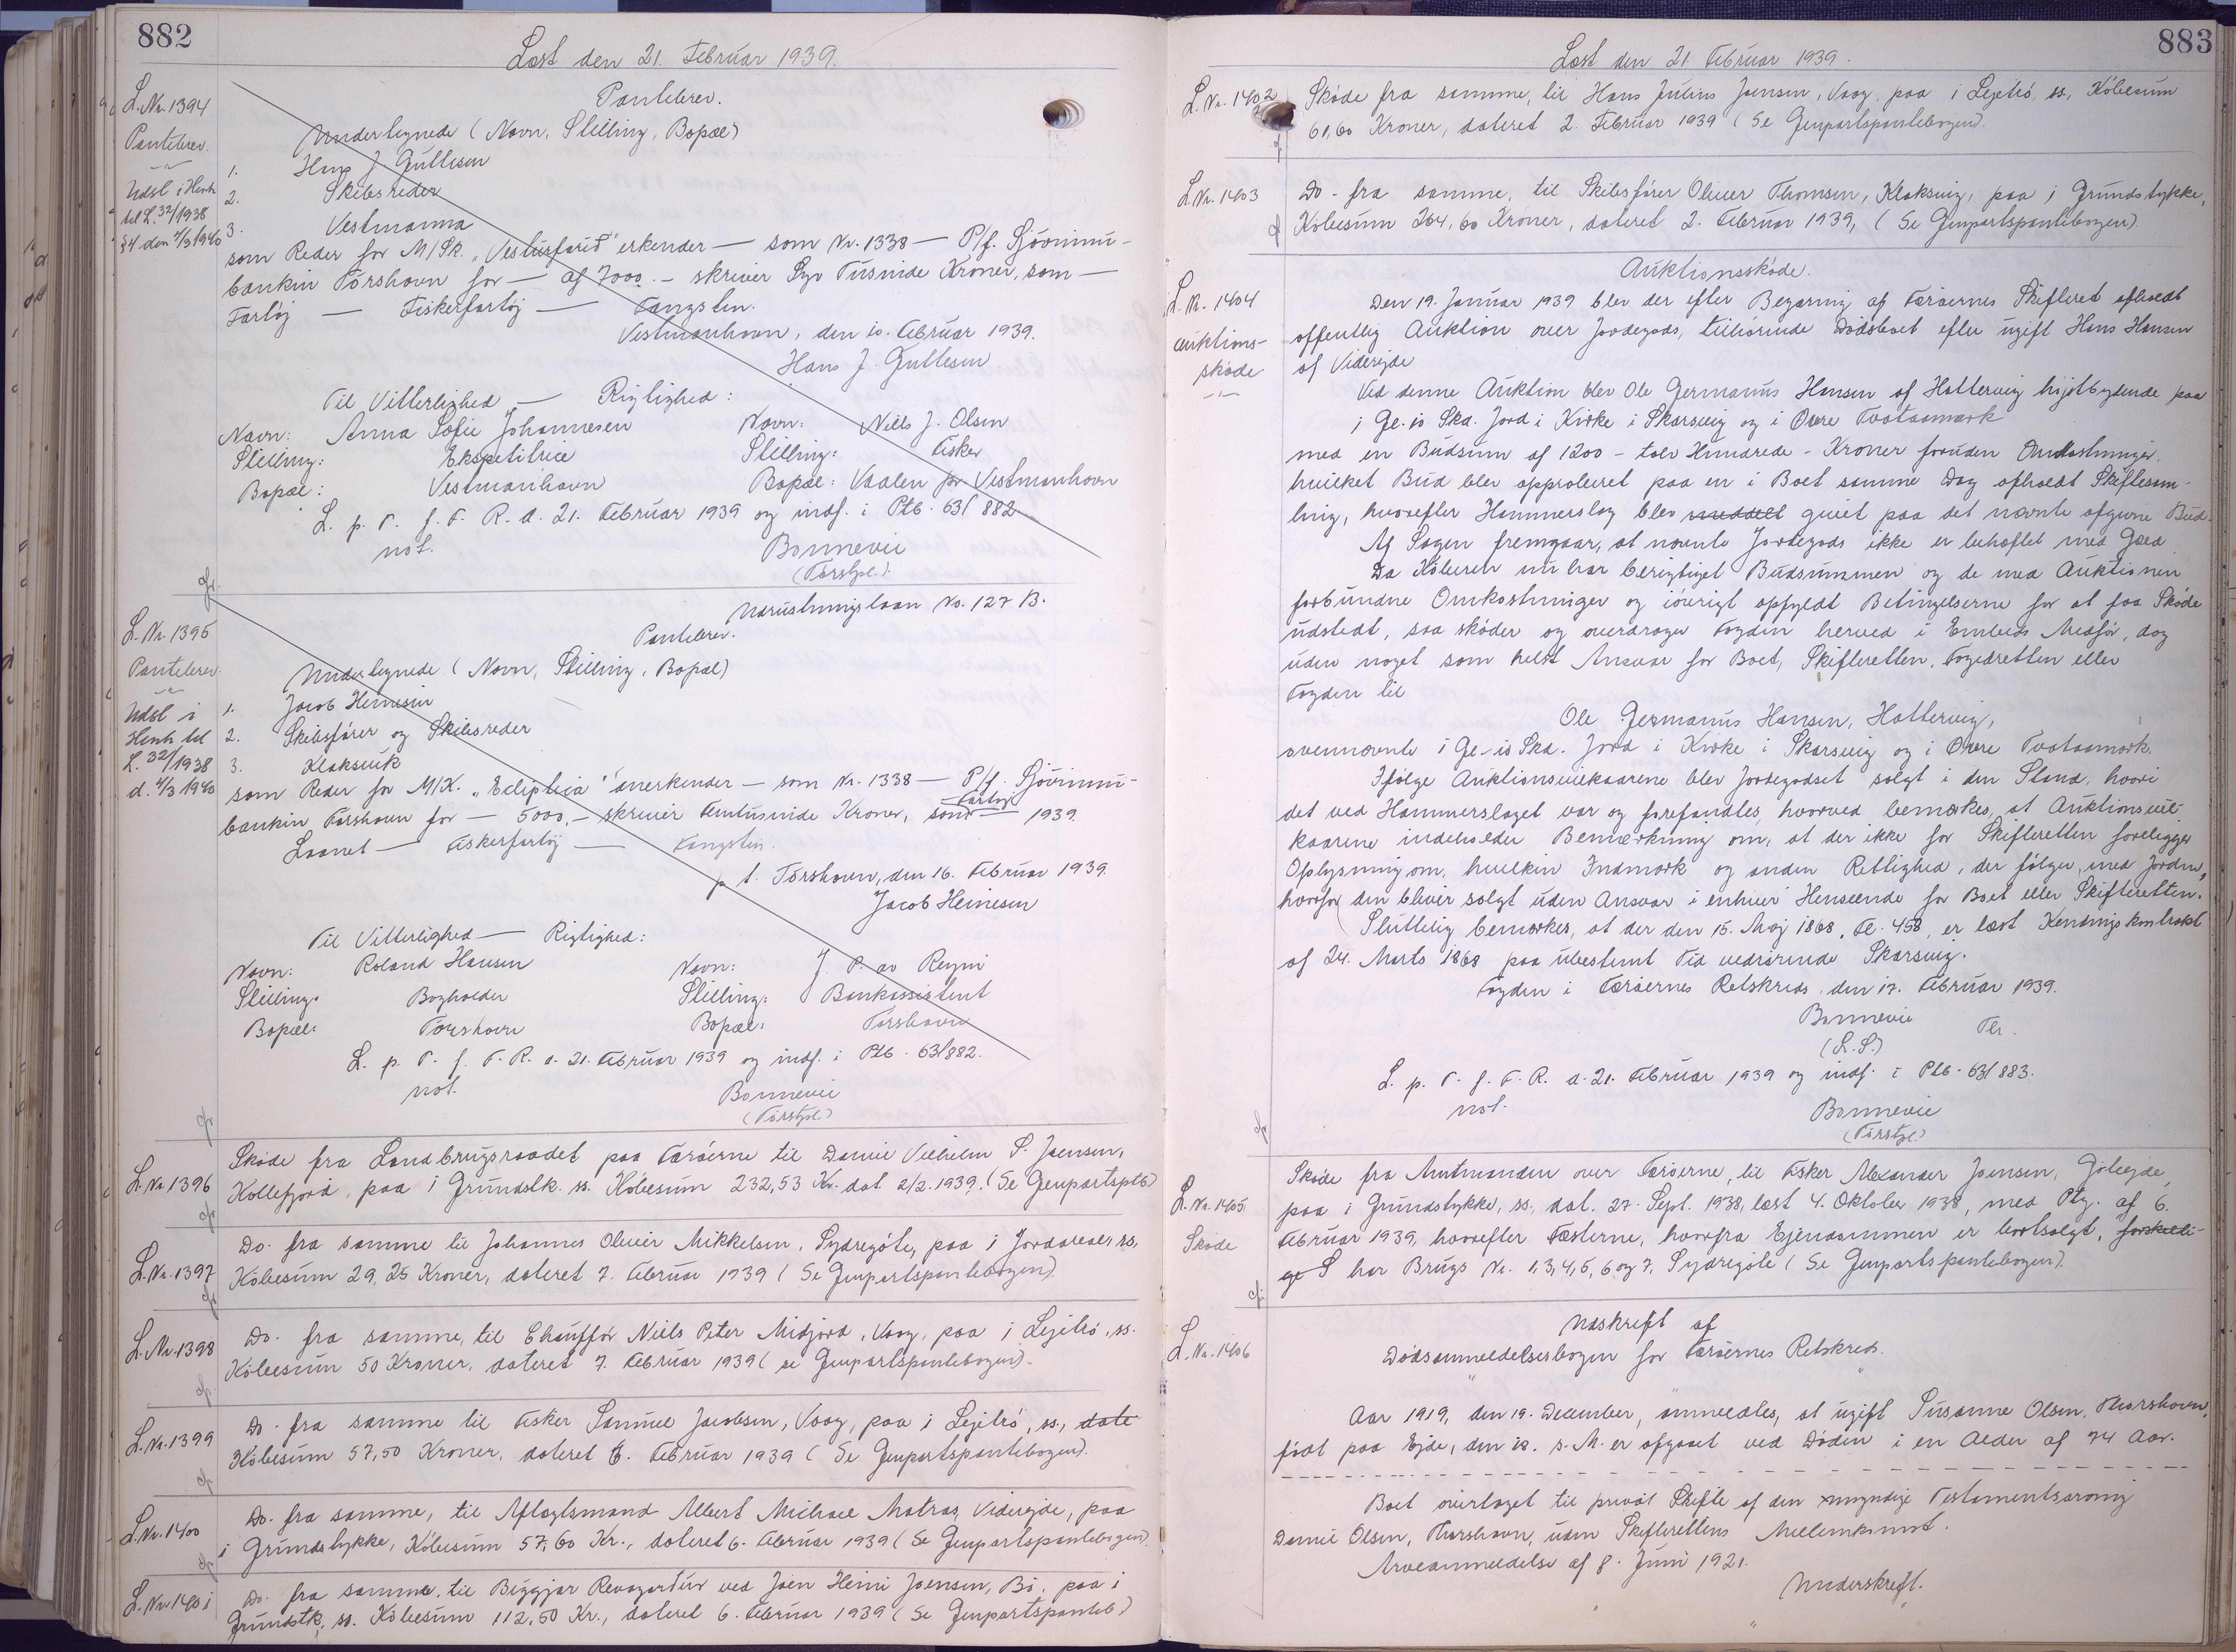 882
Læst den 21. Februar 1939.
L. Nr. 1394
Pantebrev.
Udsl. i Henh.
til L. 32/1938
§4 den 4/3 1940
Pantebrev.
Undertegnede (Navn, Stilling, Bopæl)
1. Hans J. Gullesen
2. Skibsreder
3. Vestmanna
som Reder for M/Sk. "Vesturfarið" erkender — som Nr. 1338 — P/f. Sjóvinnu-
bankin Tórshavn for — af 7000.- skriver Syv Tusinde Kroner, som —
Fartøj — Fiskerfartøj — Fangsten.
Vestmanhavn, den 10. Februar 1939.
Hans J. Gullesen
Til Vitterlighed — Rigtighed:
Navn: Anna Sofie Johannesen Navn: Niels J. Olsen
Stilling: Ekspeditrice Stilling: Fisker
Bopæl: Vestmanhavn Bopæl: Vaalen pr Vestmanhavn
L. p. T. f. F. R. d. 21. Februar 1939 og indf. i Ptb. 63/882
not. Bonnevie
(Torstpl.)
Udrustningslaan No. 127 B.
L. Nr. 1395
Pantebrev
Udsl i
Henh til
L. 32/1938
d. 4/3 1940
Pantebrev.
Undertegnede (Navn, Stilling, Bopæl)
1. Jacob Heinesen
2. Skibsfører og Skibsreder
3. Klaksvik
som Reder for M/K. "Ecliptica" anerkender — som Nr. 1338 — P/f. Sjóvinnu-
bankin Tórshavn for — 5000.- skriver Femtusinde Kroner, som Fartøj — 1939.
Laanet — Fiskerfartøj — Fangsten.
p t. Tórshavn, den 16. Februar 1939.
Jacob Heinesen
Til Vitterlighed — Rigtighed:
Navn: Roland Hansen Navn: J. P. av Reyni
Stilling: Bogholder Stilling: Bankassistent
Bopæl: Tórshavn Bopæl: Tórshavn
L. p. T. f. F. R. d. 21. Februar 1939 og indf. i Ptb. 63/882.
not. Bonnevie
(Torstpl.)
L. Nr. 1396 Skøde fra Landbrugsraadet paa Færøerne til Daniel Vilhelm S. Joensen,
Kollefjord, paa 1 Grundstk. ss. Købesum 232,53 Kr. dat. 2/2. 1939. (Se Genpartsptb)
L. Nr. 1397 Do. fra samme til Johannes Oliver Mikkelsen, Sydregøte, paa 1 Jordareal ss,
Købesum 29,25 Kroner, dateret 7. Februar 1939 (Se Genpartspantebogen).
L. Nr. 1398 Do. fra samme, til Chauffør Niels Peter Midjord, Vaag, paa 1 Lejetrø, ss.
Købesum 50 Kroner, dateret 7. Februar 1939 (se Genpartspantebogen).
L. Nr. 1399 Do. fra samme til Fisker Samuel Jacobsen, Vaag, paa 1 Lejetrø, ss., date
Købesum 57,50 Kroner, dateret 6. Februar 1939 (Se Genpartspantebogen).
L. Nr. 1400 Do. fra samme, til Aftægtsmand Albert Michael Matras, Viderejde, paa
1 Grundstykke, Købesum 57,60 Kr., dateret 6. Februar 1939 (Se Genpartspantebogen)
L. Nr. 1401 Do. fra samme, til Byggjar Revagartur ved Joen Heini Joensen, Bø, paa 1
Grundstk, ss. Købesum 112,50 Kr., dateret 6. Februar 1939 (Se Genpartspanteb)
883
Læst den 21. Februar 1939.
L. Nr. 1402 Skøde fra samme, til Hans Julius Joensen, Vaag, paa 1 Lejetrø, ss, Købesum
61,60 Kroner, dateret 2. Februar 1939 (Se Genpartspantebogen).
L. Nr. 1403 Do - fra samme, til Skibsfører Oliver Thomsen, Klaksvig, paa 1 Grundstykke,
Købesum 264,60 Kroner, dateret 2. Februar 1939, (Se Genpartspantebogen)
L. Nr. 1404
Auktions-
skøde
Auktionsskøde.
Den 19. Januar 1939 blev der efter Begæring af Færøernes Skifteret afholdt
offentlig Auktion over Jordegods, tilhørende Dødsboet efter ugift Hans Hansen
af Viderejde
Ved denne Auktion blev Ole Germanus Hansen af Hattervig højstbydende paa
1 Gl. 10 Ska. Jord i Kirke i Skarsvig og i Øvre Tvotaamark
med en Budsum af 1200 - tolv Hundrede - Kroner foruden Omkostninger,
hvilket Bud blev approberet paa en i Boet samme Dag afholdt Skiftesam-
ling, hvorefter Hammerslag blev meddelt givet paa det nævnte afgivne Bud.
Af Sagen fremgaar, at nævnte Jordegods ikke er behæftet med Gæld
Da Køberen nu har berigtiget Budsummen og de med Auktionen
forbundne Omkostninger og iøvrigt opfyldt Betingelserne for at faa Skøde
udstedt, saa skøder og overdrager Fogden herved i Embeds Medfør, dog
uden noget som helst Ansvar for Boet, Skifteretten, Fogedretten eller
Fogden til
Ole Germanus Hansen, Hattervig,
ovennævnte 1 Gl-10 Ska. Jord i Kirke i Skarsvig og i Øvre Tvotaamork.
Ifølge Auktionsvilkaarene blev Jordegodset solgt i den Stand, hvori
det ved Hammerslaget var og forefandtes, hvorved bemærkes, at Auktionsvil-
kaarene indeholder Bemærkning om, at der ikke for Skifteretten foreligger
Oplysning om, hvilken Indmark og anden Rettighed, der følger med Jorden,
hvorfor den bliver solgt uden Ansvar i enhver Henseende for Boet eller Skifteretten.
Sluttelig bemærkes, at der den 15. Maj 1868, Fl. 458, er læst Kendingskontrakt
af 24. Marts 1868 paa ubestemt Tid vedrørende Skarsvig.
Fogden i Færøernes Retskreds, den 17. Februar 1939.
Bonnevie
Flr.
(L.S.)
L. p. T. f. F. R. d. 21. Februar 1939 og indf. i Ptb. 63/883.
not. Bonnevie
(Torstpl)
L. Nr. 1405
Skøde
Skøde fra Amtmanden over Færøerne, til Fisker Alexander Joensen, Gøtegjde,
paa 1 Grundstykke, ss., dat. 27. Sept. 1938, læst 4. Oktober 1938, med Ptg. af 6.
Februar 1939, hvorefter Fæsterne, hvorfra Ejendommen er bortsolgt, forskelli-
ge S har Brugs Nr. 1,3,4,5,6 og 7, Sydregøte (Se Genpartspantebogen).
L. Nr. 1406
Udskrift af
Dødsanmeldelsesbogen for Færøernes Retskreds.
Aar 1919, den 19. December, anmeldtes, at ugift Susanne Olsen, Thorshavn,
født paa Ejde, den 18. s. M. er afgaaet ved Døden i en Alder af 74 Aar.
Boet overtaget til privat Skifte af den myndige Testamentsarving
Daniel Olsen, Thorshavn, uden Skifterettens Mellemkomst.
Arveanmeldelse af 8. Juni 1921.
Underskrift.